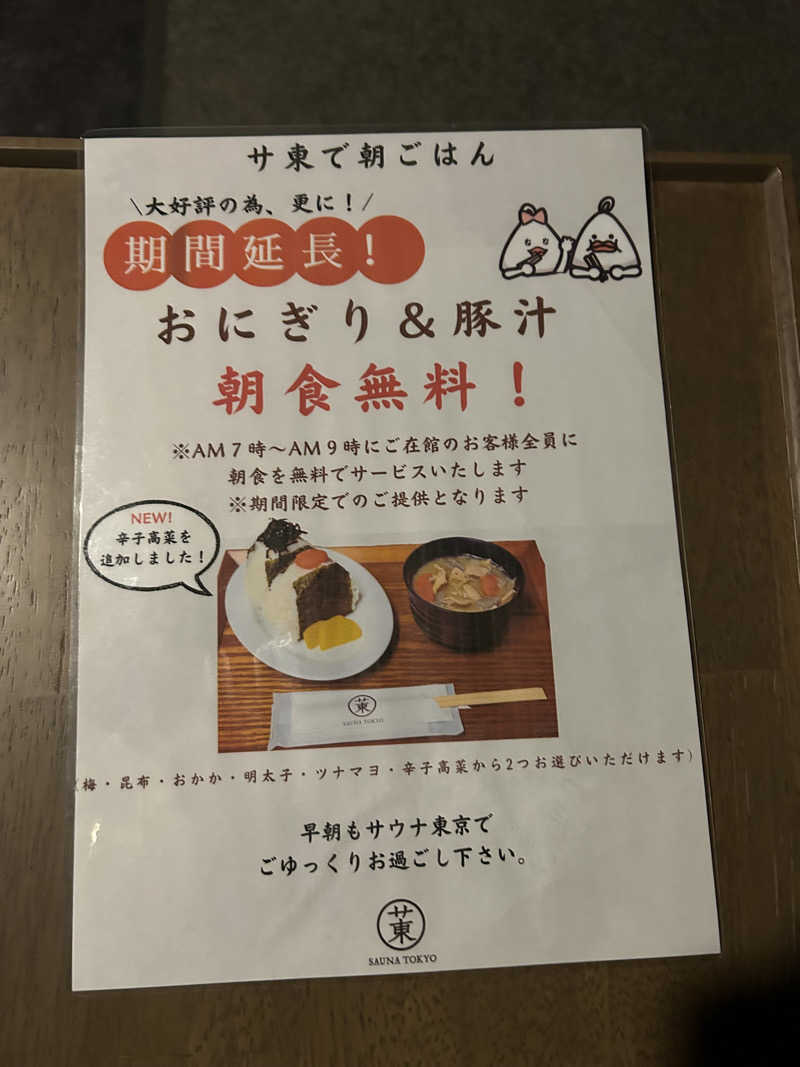 サ東で朝ごはん
\大好評の為、更に！/
期間延長！
おにぎり＆豚汁
朝食無料！
※AM７時～AM９時にご在館のお客様全員に
朝食を無料でサービスいたします
※期間限定でのご提供となります
NEW!
辛子高菜を
追加しました！
サ東
SAUNA TOKYO
(梅・昆布・おかか・明太子・ツナマヨ・辛子高菜から2つお選びいただけます)
早朝もサウナ東京で
ごゆっくりお過ごし下さい。
サ東
SAUNA TOKYO